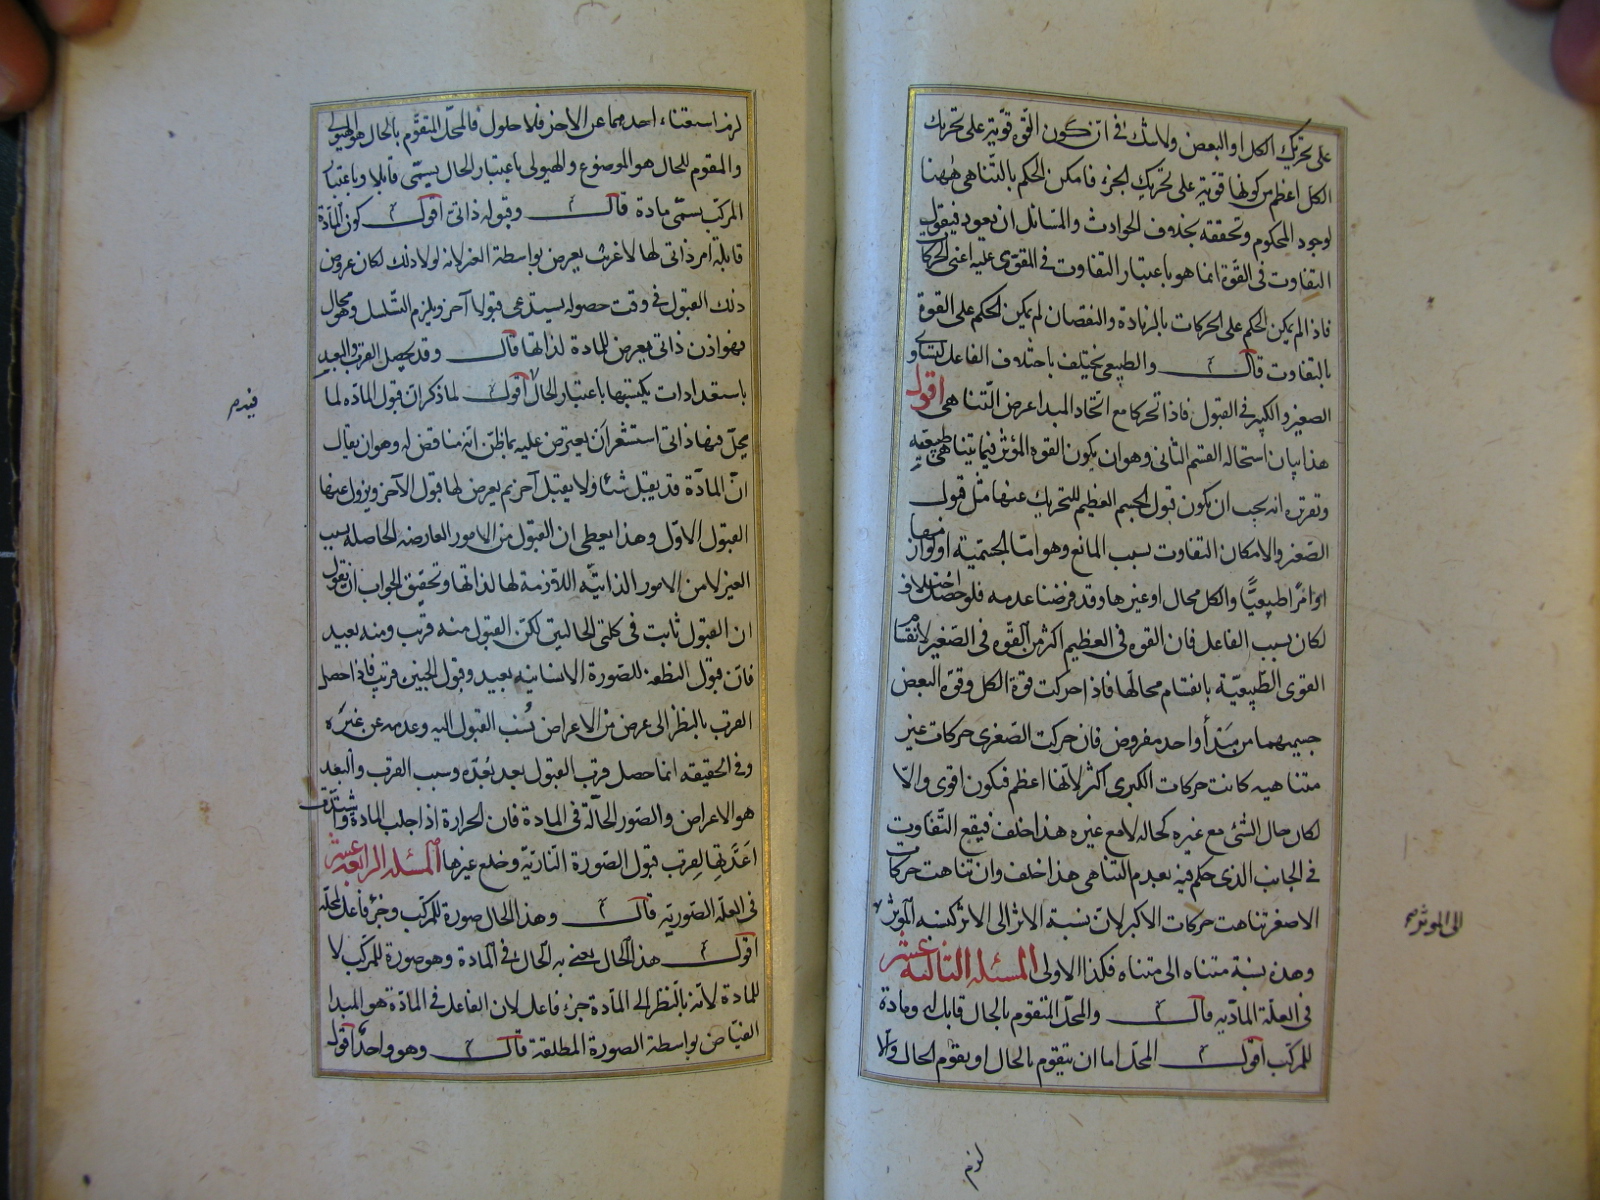 على تحريك الكل او البعض ولا شك في ان كون القوة قوية على تحريك
الكل اعظم من كونها قوية على تحريك الجزء فامكن الحكم بالتناهي ههنا
لوجود المحكوم وتحققه بخلاف الحوادث والسائل ان يعود فيقول
التفاوت في القوة انما هو باعتبار التفاوت في المقوى عليه اعنى الحركات
فاذا لم يكن الحكم على الحركات بالزيادة والنقصان لم يكن الحكم على القوة
بالتفاوت قال والطبيعي يختلف باختلاف الفاعل لتساوي
الصغير والكبير في القبول فاذا تحركا مع اتحاد المبدا عرض التناهي اقول
هذا بيان استحاله القسم الثاني وهو ان يكون القوه المؤثر فيما يتناهى طبيعية
وتقريره انه يجب ان يكون قبول الجسم العظيم للتحريك عنها مثل قبول
الصغير والا لكان التفاوت بسبب المانع وهو اما الجسمية او لوازمها
او امرا طبيعيا والكل محال او غيرها وقد فرضنا عدمه فلو حصل اختلاف
لكان بسبب الفاعل فان القوه في العظيم اكثر من القوه في الصغير لانقسام
القوى الطبيعية بانقسام محالها فاذا حركت قوة الكل وقوة البعض
جسميهما من مبدأ واحد مفروض فان حركت الصغرى حركات غير
متناهيه كانت حركات الكبرى اكثر لانها اعظم فيكون اقوى والا
لكان حال الشئ مع غيره كحاله لا مع غيره هذا خلف فيقع التفاوت
في الجانب الذي حكم فيه بعدم التناهي هذا خلف وان تناهت حركات
الاصغر تناهت حركات الاكبر لان نسبة الاثر الى الاثر كنسبه المؤثر
الى الموثر صح
وهذه نسبة متناه الى متناه فكذا الاولى المسئله الثالثه عشر
في العلة المادية قال والمحل المتقوم بالحال قابل له ومادة
للمركب اقول المحل اما ان يتقوم بالحال او يقوم الحال والا
لزم
لزم استغناء احدهما عن الاخر فلا حلول فالمحل المتقوم بالحال هو الهيولى
والمقوم للحال هو الموضوع والهيولى باعتبار الحال يسمى قابلا وباعتبار
المركب يسمى مادة قال وقبوله ذاتي اقول كون المادة
قابلة امر ذاتي لها لا غريب يعرض بواسطة الغير لانه لولا ذلك لكان عروض
ذلك القبول في وقت حصوله يستدعي قبولا آخر ويلزم التسلسل وهو محال
فهو اذن ذاتي يعرض للمادة لذاتها قال وقد يحصل القرب والبعد
باستعدادات يكتسبها باعتبار الحال اقول لما ذكر ان قبول المادة لما
يحل فيها ذاتي استشعر ان يعترض عليه بما ظن انه مناقض له وهو ان يقال
ان المادة قد يقبل شئا ولا يقبل آخر ثم يعرض لها قبول الآخر ويزول عنها
القبول الاول وهذا يعطى ان القبول من الامور العارضه الحاصله بسبب
الغير لا من الامور الذاتيه اللازمة لها لذاتها وتحقيق الجواب ان نقول
ان القبول ثابت في كلتي الحالتين لكن القبول منه قريب ومنه بعيد
فان قبول النطفة للصورة الانسانيه بعيد وقبول الجنين قريب فاذا حصل
القرب بالنظر الى عرض من الاعراض نسب القبول اليه وعدمه عن غيره
وفي الحقيقه انما حصل قرب القبول بعد بعده وسبب القرب والبعد
هو الاعراض والصور الحالة في المادة فان الحرارة اذا حلت المادة واشتدت
اعدتها لقرب قبول الصورة النارية وخلع غيرها المسئله الرابعه عشر
في العله الصوريه قال وهذا الحال صورة للمركب وجزء فاعل لمحله
اقول هذا الحال يعني به الحال في المادة وهو صورة للمركب لا
للمادة لانه بالنظر الى المادة جزء فاعل لان الفاعل في المادة هو المبدا
الفياض بواسطة الصورة المطلقة قال وهو واحد اقول